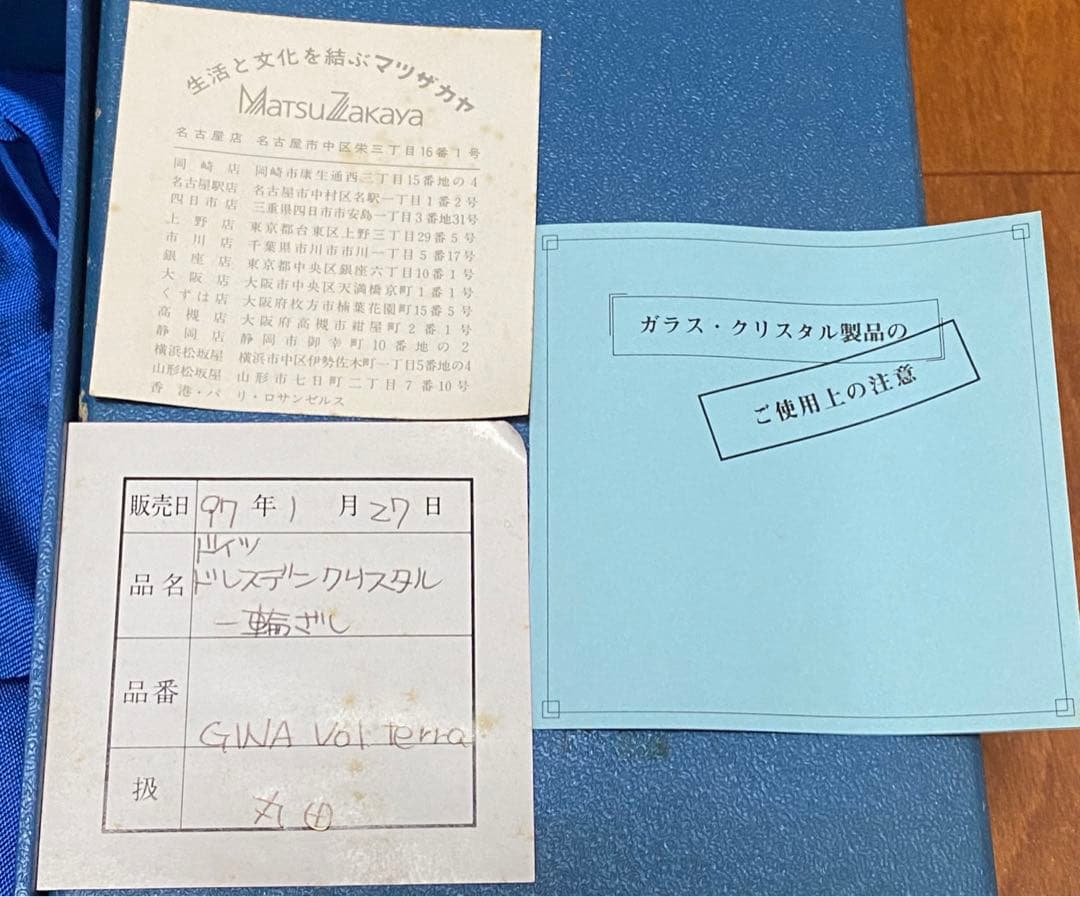 生活と文化を結ぶマツザカヤ
MatsuZakaya
名古屋店 名古屋市中区栄三丁目16番1号
岡崎店 岡崎市康生通西三丁目15番地の4
名古屋駅店 名古屋市中村区名駅一丁目1番2号
四日市店 三重県四日市市安島一丁目3番地31号
上野店 東京都台東区上野三丁目29番5号
市川店 千葉県市川市市川一丁目5番17号
銀座店 東京都中央区銀座六丁目10番1号
大阪店 大阪市中央区天満橋京町1番1号
くずは店 大阪府枚方市楠葉花園町15番5号
高槻店 大阪府高槻市紺屋町2番1号
静岡店 静岡市御幸町10番地の2
横浜松坂屋 横浜市中区伊勢佐木町一丁目5番地の4
山形松坂屋 山形市七日町二丁目7番10号
香港・パリ・ロサンゼルス
販売日 97年1月27日
品名 ドイツ
ドレスデンクリスタル
一輪ざし
品番 GINA Vol terra
扱 丸田
ガラス・クリスタル製品の
ご使用上の注意